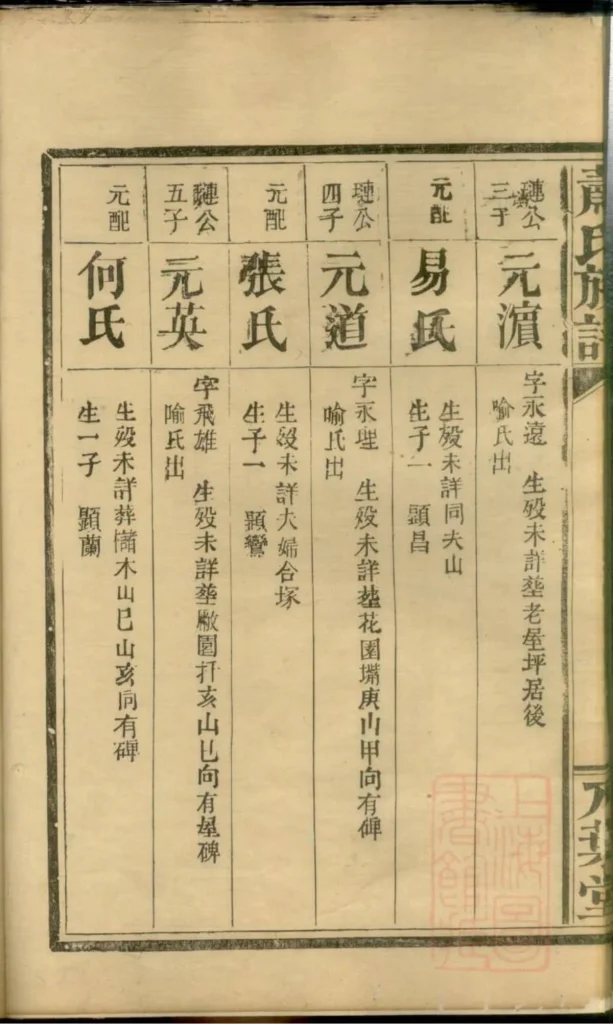 蕭氏族譜
八葉堂
璉公
三子
元濵
字永遠 生殁未詳塟老屋坪居後
喻氏出
元配
易氏
生殁未詳同夫山
生子一 顕昌
璉公
四子
元道
字永理 生殁未詳塟花園嘴庚山甲向有碑
喻氏出
元配
張氏
生殁未詳夫婦合塚
生子一 顕鸞
璉公
五子
元英
字飛雄 生殁未詳塟廠園扦亥山巳向有屋碑
喻氏出
元配
何氏
生殁未詳葬櫧木山巳山亥向有碑
生一子 顕蘭
上海圖
書館藏